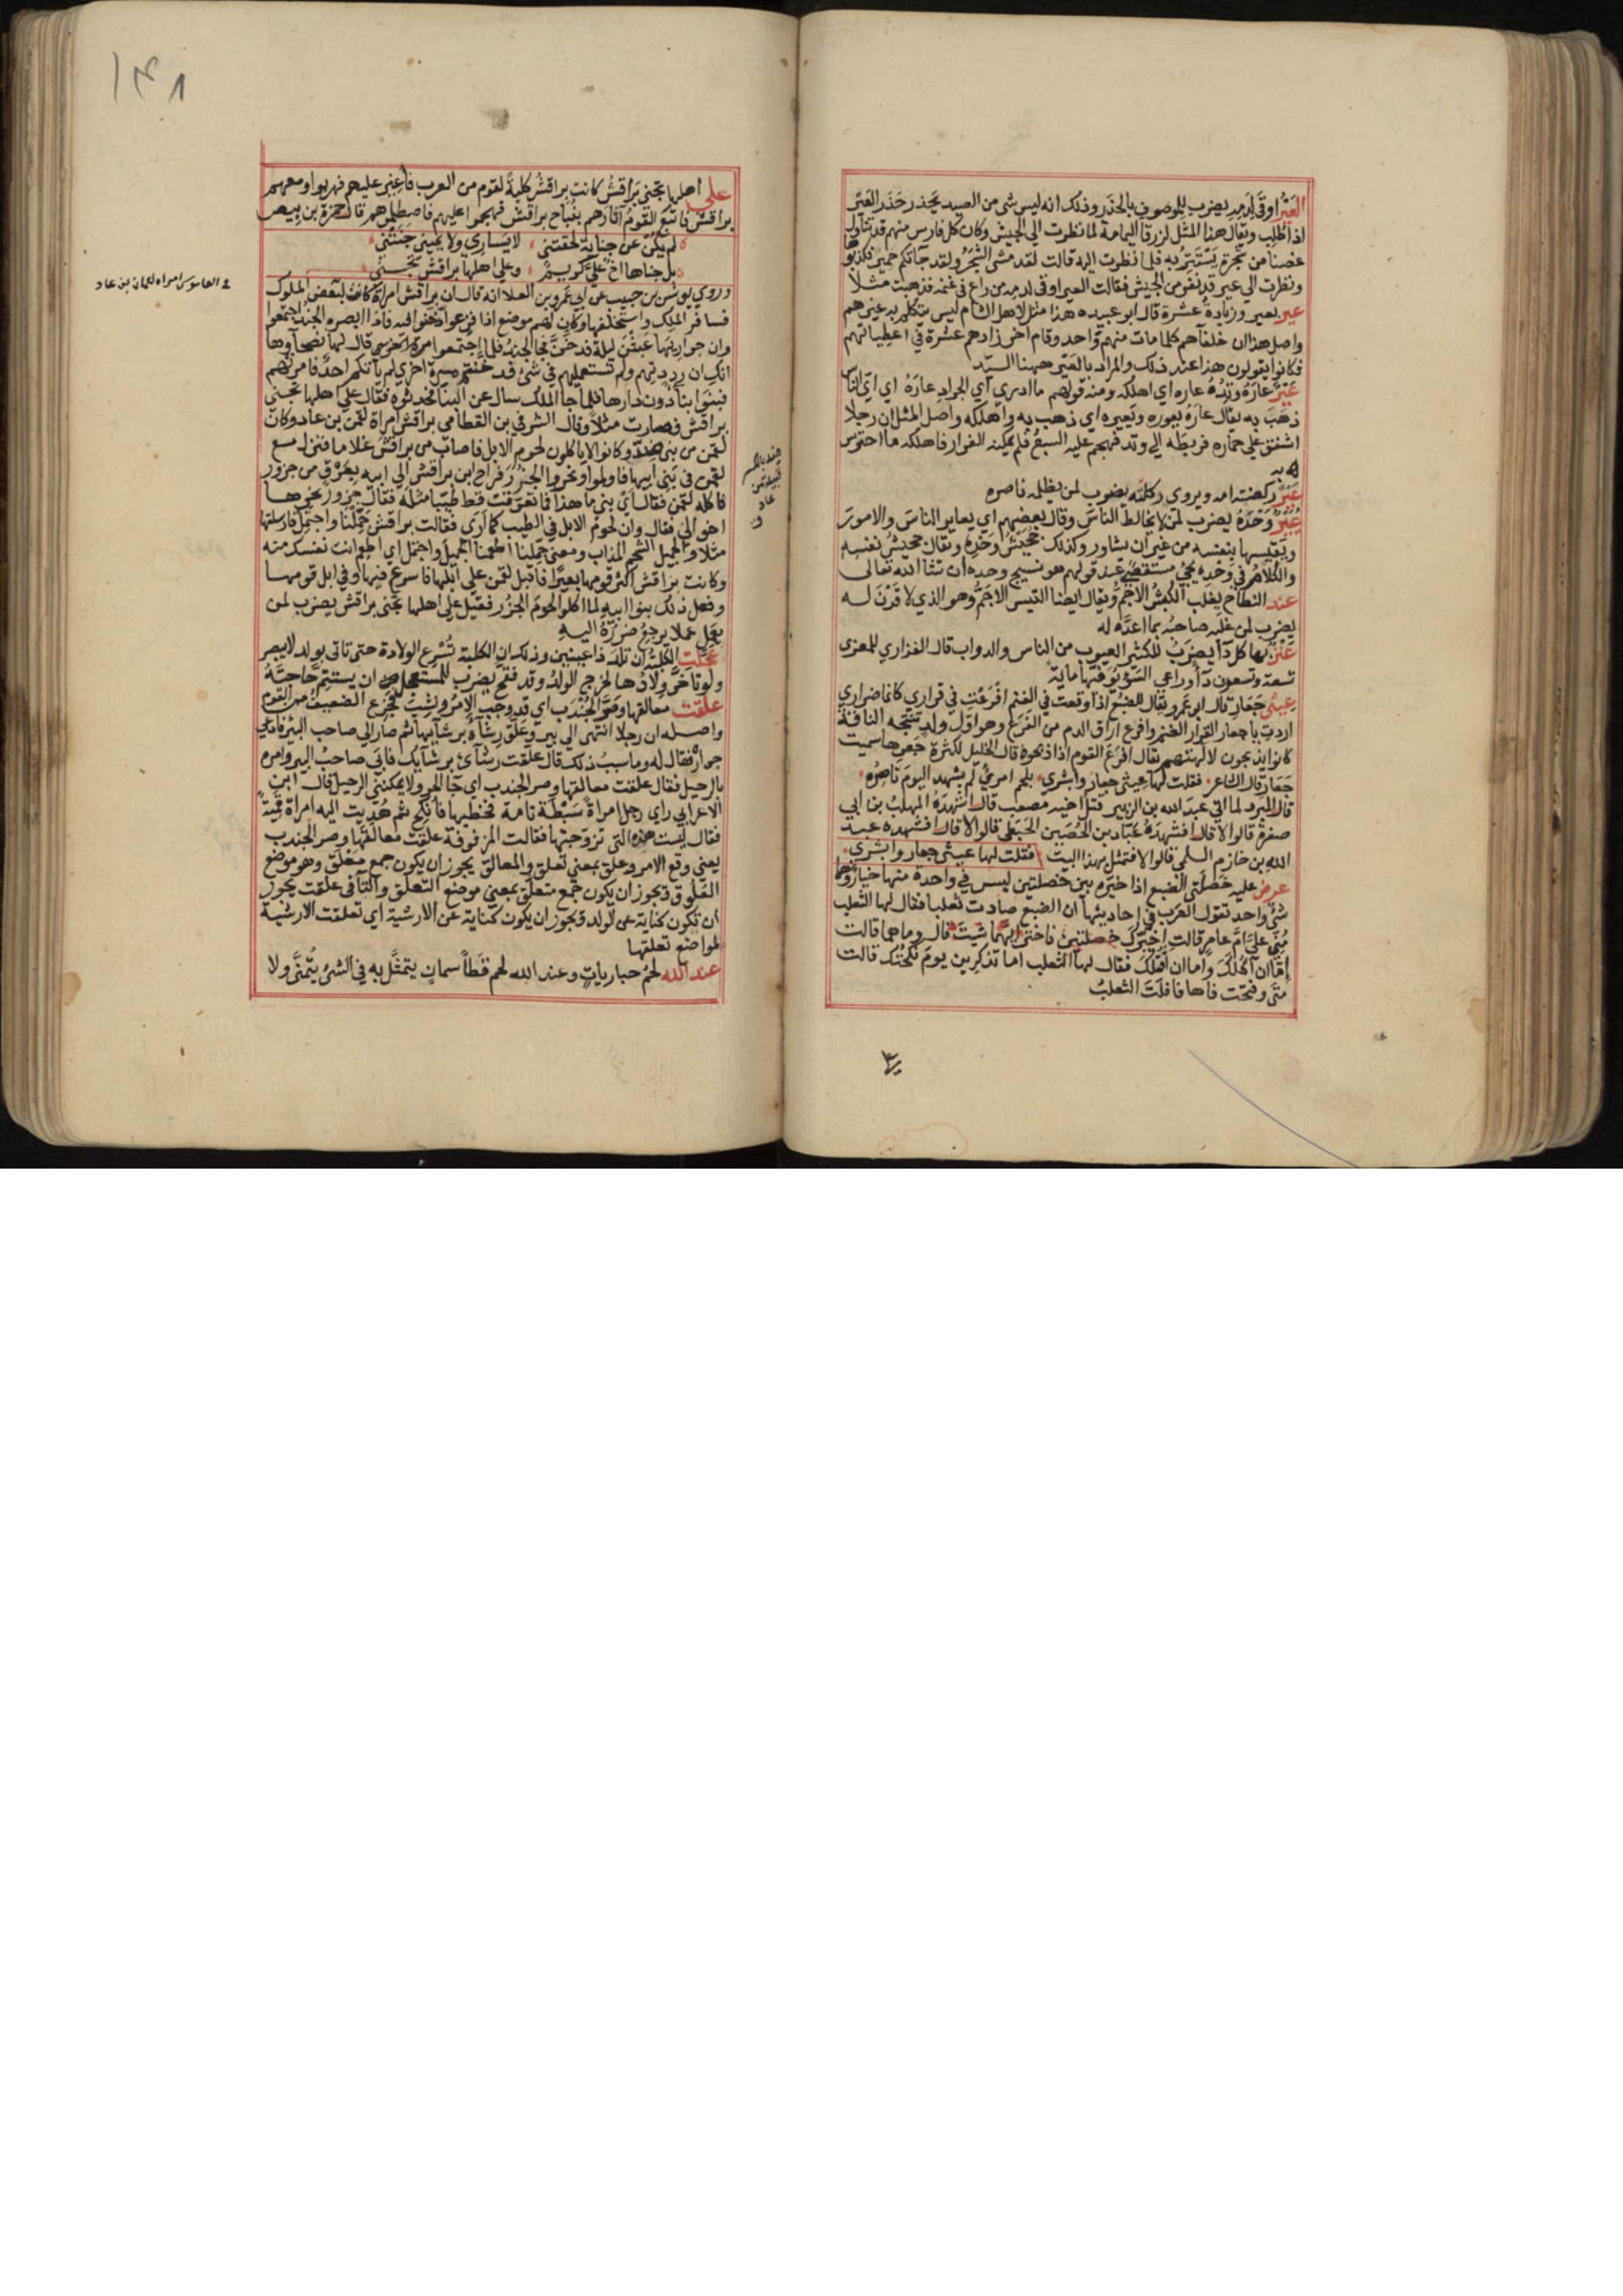 العَيْرُ اوقَى لِدَمِه يضرب للموصوف بالحَذَر وذلك انه ليس شى من الصيد يَحْذَر حَذَرَ العَيْر
اذا طُلِب ويقال هذا المثل لزرقا اليمامة لما نظرت الى الجيش وكان كل فارس منهم قد تناول
غصنا من شجرة يَسْتَتِرُ به فلما نظرت اليه قالت لقد مشى الشَّجَرُ ولقد جاتكم حمير فكذبوها
ونظرت الى عير قد نفر من الجيش فقالت العير اوقى لدمه من راع فى غنمه فذهبت مثلا
عير بعير وزيادة عشرة قال ابو عبيده هذا مثل لاهل الشام ليس يتكلم به غيرهم
واصل هذا ان خلفآهم كلما مات منهم واحد وقام اخر زادهم عشرة فى اعطياتهم
فكانوا يقولون هذا عند ذلك والمراد بالعَيْر ههنا السيّد
عَيْرٌ عَارَهُ وَتِدُهُ عاره اى اهلكه ومنه قولهم ما ادرى اى الجراد عَارَهُ اى اىّ الناس
ذهَبَ به يقال عارَهُ يعوره ويَعيره اى ذهب به واهلكه واصل المثل ان رجلا
اشفق على حماره فربطه الى وتد فهجم عليه السبع فلم يمكنه الفرار فاهلكه ما احترس
له به
عَيْرٌ ركضته امه ويروى ركلته يضرب لمن يظلمه ناصره
عُيَيْرُ وَحْدِهُ يضرب لمن لا يخالط الناس وقال بعضهم اى يعاير الناس والامور
ويقيسها بنفسه من غير ان يشاور وكذلك جُحَيْشُ وَحْدِهِ ويقال جحيش نفسه
والكلام فى وَحْدِه يجئ مستقصى عند قولهم هو نسيج وحده ان شا الله تعالى
عند النطاح يغلب الكبْشُ الاجَمُّ ويقال ايضا التيس الاجَمُّ وهو الذى لا قَرْنَ له
يضرب لمن غلبه صاحبُه بما اعدَّه له
عَنْزٌ بها كل دآ يضرَبُ للكثير العيوب من الناس والدواب قال الفزارى للمعزى
تسعة وتسعون دآ وراعى السَّوْ يُوَفِّيها مايةً
عِيثى جَعَارِ قال ابو عَمرو يقال للضبع اذا وقعت فى الغنم افْرَعْتِ فى قرارى كانما ضرارى
اردتِ يا جعار القرار الغنم وافرع اراق الدم من الفَرَع وهو اوّل ولد تنتجه الناقة
كانوا يذبحون لالهتهم يقال افْرَعَ القوم اذا ذبحوه قال الخليل لكثرة جَعرها سميت
جَعَارِ قال الشاعر ۰ فقلت لها عِيثى جعارِ وابشرى ۰ بلحم امرئ لم يشهد اليومَ ناصرُه ۰
قال المبرد لما اتى عبد الله بن الزبير قتل اخيه مصعب قال اشهدَهُ المهلبُ بن ابى
صفرة قالوا لا قال افشهدَهُ عَبّاد بن الحُصَين الحَبَطِى قالوا لا قال افشهده عبد
الله بن خازم السلمى قالوا لا فتمثل بهذا البيت فقلت لها عيثى جعار وابشرى ۰
عرض عليه خَصْلَتَى الضبع اذا خيّره بين خصلتين ليس فى واحدة منها خيار وهما
شئ واحد تقول العرب فى احاديثها ان الضبع صادت ثعلبا فقال لها الثعلب
مُنِّى عَلَىَّ امَّ عامرٍ قالتِ اُخَيّرك خصلتين فاختر ايّهما شيتَ قال وما هما قالت
اِمّا ان آكُلَكَ واِما ان اقتُلَكَ فقال لها الثعلب اما تذكرين يوم نكحتك قالت
مَتَى وفتحت فاها فافلَتَ الثعلبُ
على
١٣٨
على اهلها تجنى بَرَاقشُ كانت براقش كلبةً لقوم من العرب فاُغير عليهم فهربوا ومعهم
براقش فاتبع القومُ آثارهم بنُباح براقش فهجموا عليهم فاصطلموهم قال حمزة بن بيض
لم يكُن عن جِنايةٍ لحقتنى ۰ لا يَسَارى ولا يمينى جَنَتْنى ۰
بل جناها اخٌ عَلَىَّ كريمٌ ۰ وعلى اهلها براقش تجْنى ۰
وروى يونس بن حبيب عن ابى عَمرو بن العلا انه قال ان براقش امراة كانت لبعض الملوك
فسافر الملك واستخلفها وكان لهم موضع اذا فزعوا دخنوا فيه فاذا ابصره الجند اجتمعوا
وان جواريها عَبِثْنَ ليلة فدخَنَّ فجا الجند فلما اجتمعوا قال لها نصحاؤها
انك ان رددتهم ولم تستعمليهم فى شئ فدخنتهم مرة اخرى لم ياتكم احد فامرتهم
فبنوا بنآ دون دارها فلما جا الملك سال عن البنا فحدثوه فقال على اهلها تجنى
براقش فصارت مثلا وقال الشرقى بن القطامى براقش امراة لقمن بن عاد وكان
لقمن من بنى ضِدّ وكانوا لا ياكلون لحوم الابل فاصاب من براقش غلاما فنزل مع
لقمن فى بَنى ابيها فاولموا ونحروا الجزُرَ فراح ابن براقش الى ابيه بعَرْق من جزور
فاكله لقمن فقال اى بنى ما هذا فما تعرّقتُ قط طيّبا مثله فقال جزور نحرها
اخوالى فقال وان لحوم الابل فى الطيب كما ارى فقالت براقش جَمِّلْنا واجتمِل فارسلتها
مثلا والجميل الشحم المذاب ومعنى جمِّلنا اطعمنا الجميل واجتمل اى اطعم انت نفسك منه
وكانت براقش اكثر قومها بعيرًا فاقبل لقمن على ابلها فاسرع فيها وفى ابل قومها
وفعل ذلك بنوا ابيه لما اكلوا لحومَ الجزُر فقيل على اهلها تجنى براقش يضرب لمن
يعمل عملا يرجع ضررُهُ اليه
عَجِلَت الكلْبَةُ ان تلد ذا عينين وذلك ان الكلبة تُسْرع الولادة حتى تاتى بولد لا يبصر
ولو تاخّر وِلادُها لخرج الولدُ وقد فتح يضرب للمستعجل عن ان يستتِمَّ حاجتَهُ
علِقَت معالقها وصَرَّ الجُنْدَب اى قد وجب الامرُ ونشِبَ فجزع الضعيفُ من القوم
واصله ان رجلا انتهى الى بير وعَلَّق رِشآءَهُ برشآيها ثم صار الى صاحب البئر فادّعى
جوارهُ فقال له وما سببُ ذلك قال علقت رشآئى برشآيك فابى صاحبُ البير وامره
بالرحيل فقال علقت معالقها وصر الجندب اى جا الحر ولا يمكننى الرحيل قال ابن
الاعرابى راى رجل امراةً سَبْطَة تامة فخطبها فاُنكِح ثم هُدِيَت اليه امراة قميّة
فقال ليست هذه التى تزوجتها فقالت المزفوفة علقت معالقها وصر الجندب
يعنى وقع الامر وعلق بمعنى تعلق والمعالق يجوز ان يكون جمع مَعْلَق وهو موضع
العلوق ويجوز ان يكون جمع متعلَّق بمعنى موضع التعلّق والتآ فى علقت يجوز
ان تكون كناية عن الدلو ويجوز ان يكون كناية عن الارشية اى تعلقت الارشية
بمواضع تعلقها
عند الله لحمُ حبارياتٍ وعند الله لحم قَطاً سمانٍ يتمثَّل به فى الشئ يُتمنَّى ولا
فى القاموس امراة لقمان بن عاد
ضد بالكسر
قبيلة من
عاد